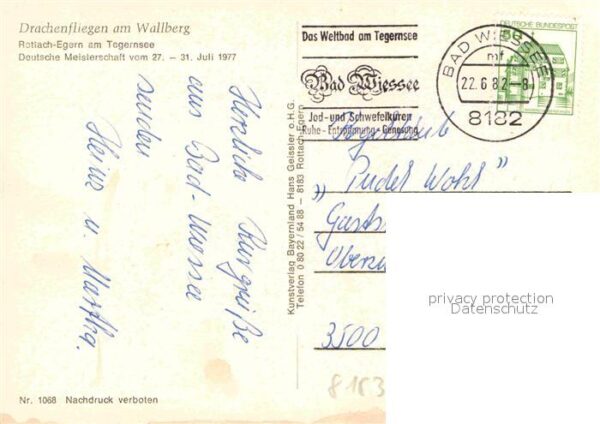 Drachenfliegen am Wallberg
Rottach-Egern am Tegernsee
Deutsche Meisterschaft vom 27. – 31. Juli 1977
Herzliche Kurgrüße
aus Bad-Wiessee
senden
Heinz u. Martha.
Nr. 1068 Nachdruck verboten
Kunstverlag Bayernland Hans Geissler o.H.G.
Telefon 0 80 22 / 54 88 – 8183 Rottach-Egern
Das Weltbad am Tegernsee
Bad Wiessee
Jod- und Schwefelkuren
Ruhe - Entspannung - Genesung
BAD WIESSEE
mf
22.6.82 - 8
8182
DEUTSCHE BUNDESPOST
50
„Pudel Wohl"
3500
8163
privacy protection
Datenschutz